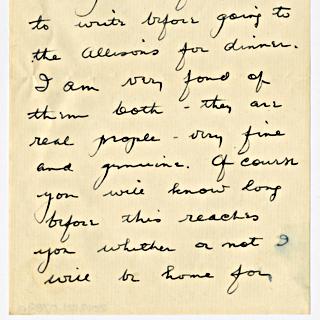 to write before going to
the Allisons for dinner.
I am very fond of
them both - they are
real people - very fine
and genuine. Of course
you will know long
before this reaches
you whether or not I
will be home for